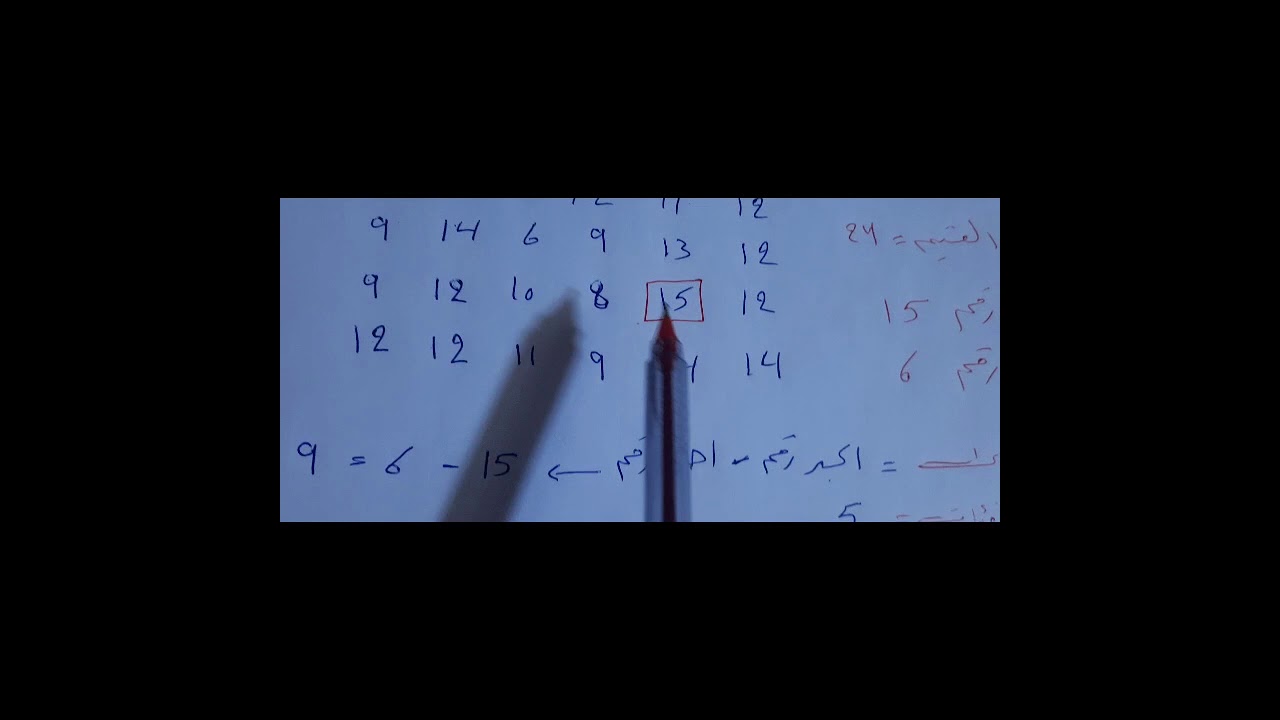 12 11 12
9 14 6 9 13 12 القيم = 24
9 12 10 8 15 12 رقم 15
12 12 11 9 14 رقم 6
= اكبر رقم - رقم ← 15 - 6 = 9
5